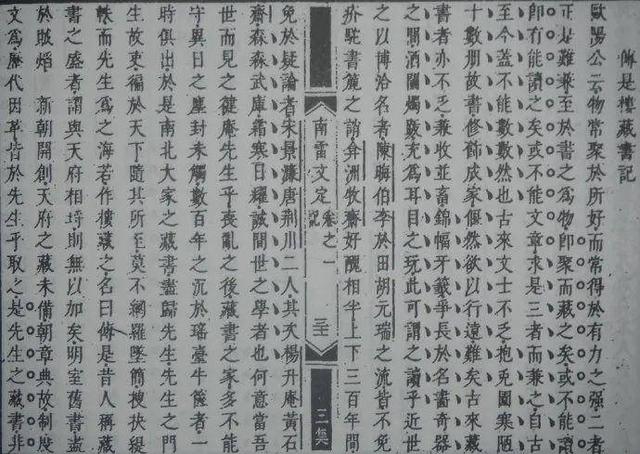 傳是樓藏書記
歐陽公云物常聚於所好而常得於有力之强二者
正是難兼至於書之爲物即聚而藏之矣或不能讀
即有能讀之矣或不能文章求是三者而兼之自古
至今蓋不能數數然也古來文士不乏抱兎園寒陋
十數册故書修飾成家偃然欲以行遠難矣古來藏
書者亦不乏兼收並畜錦幅牙籖爭長於名畵奇器
之閒酒闌燭跋充爲耳目之玩此可謂之讀乎近世
之以博洽名者陳晦伯李於田胡元瑞之流皆不免
疥駝書簏之誚弇洲牧齋好醜相半上下三百年間
南雷文定 卷之一
記
三集
免於疑論者宋景濂唐荆川二人其次楊升庵黃石
齋森森武庫霜寒日耀誠間世之學者也何意當吾
世而見之健庵先生乎喪亂之後藏書之家多不能
守異日之塵封未觸數百年之沉於瑤臺牛篋者一
時俱出於是南北大家之藏書盡歸先生先生之門
生故吏徧於天下隨其所至莫不網羅墜簡搜抉緹
帙而先生爲之海若作樓藏之名曰傳是昔人稱藏
書之盛者謂與天府相埒則無以加矣明室舊書盡
於賊熖 新朝開創天府之藏未備朝章典故制度
文爲歷代因革皆於先生乎取之是先生之藏書非